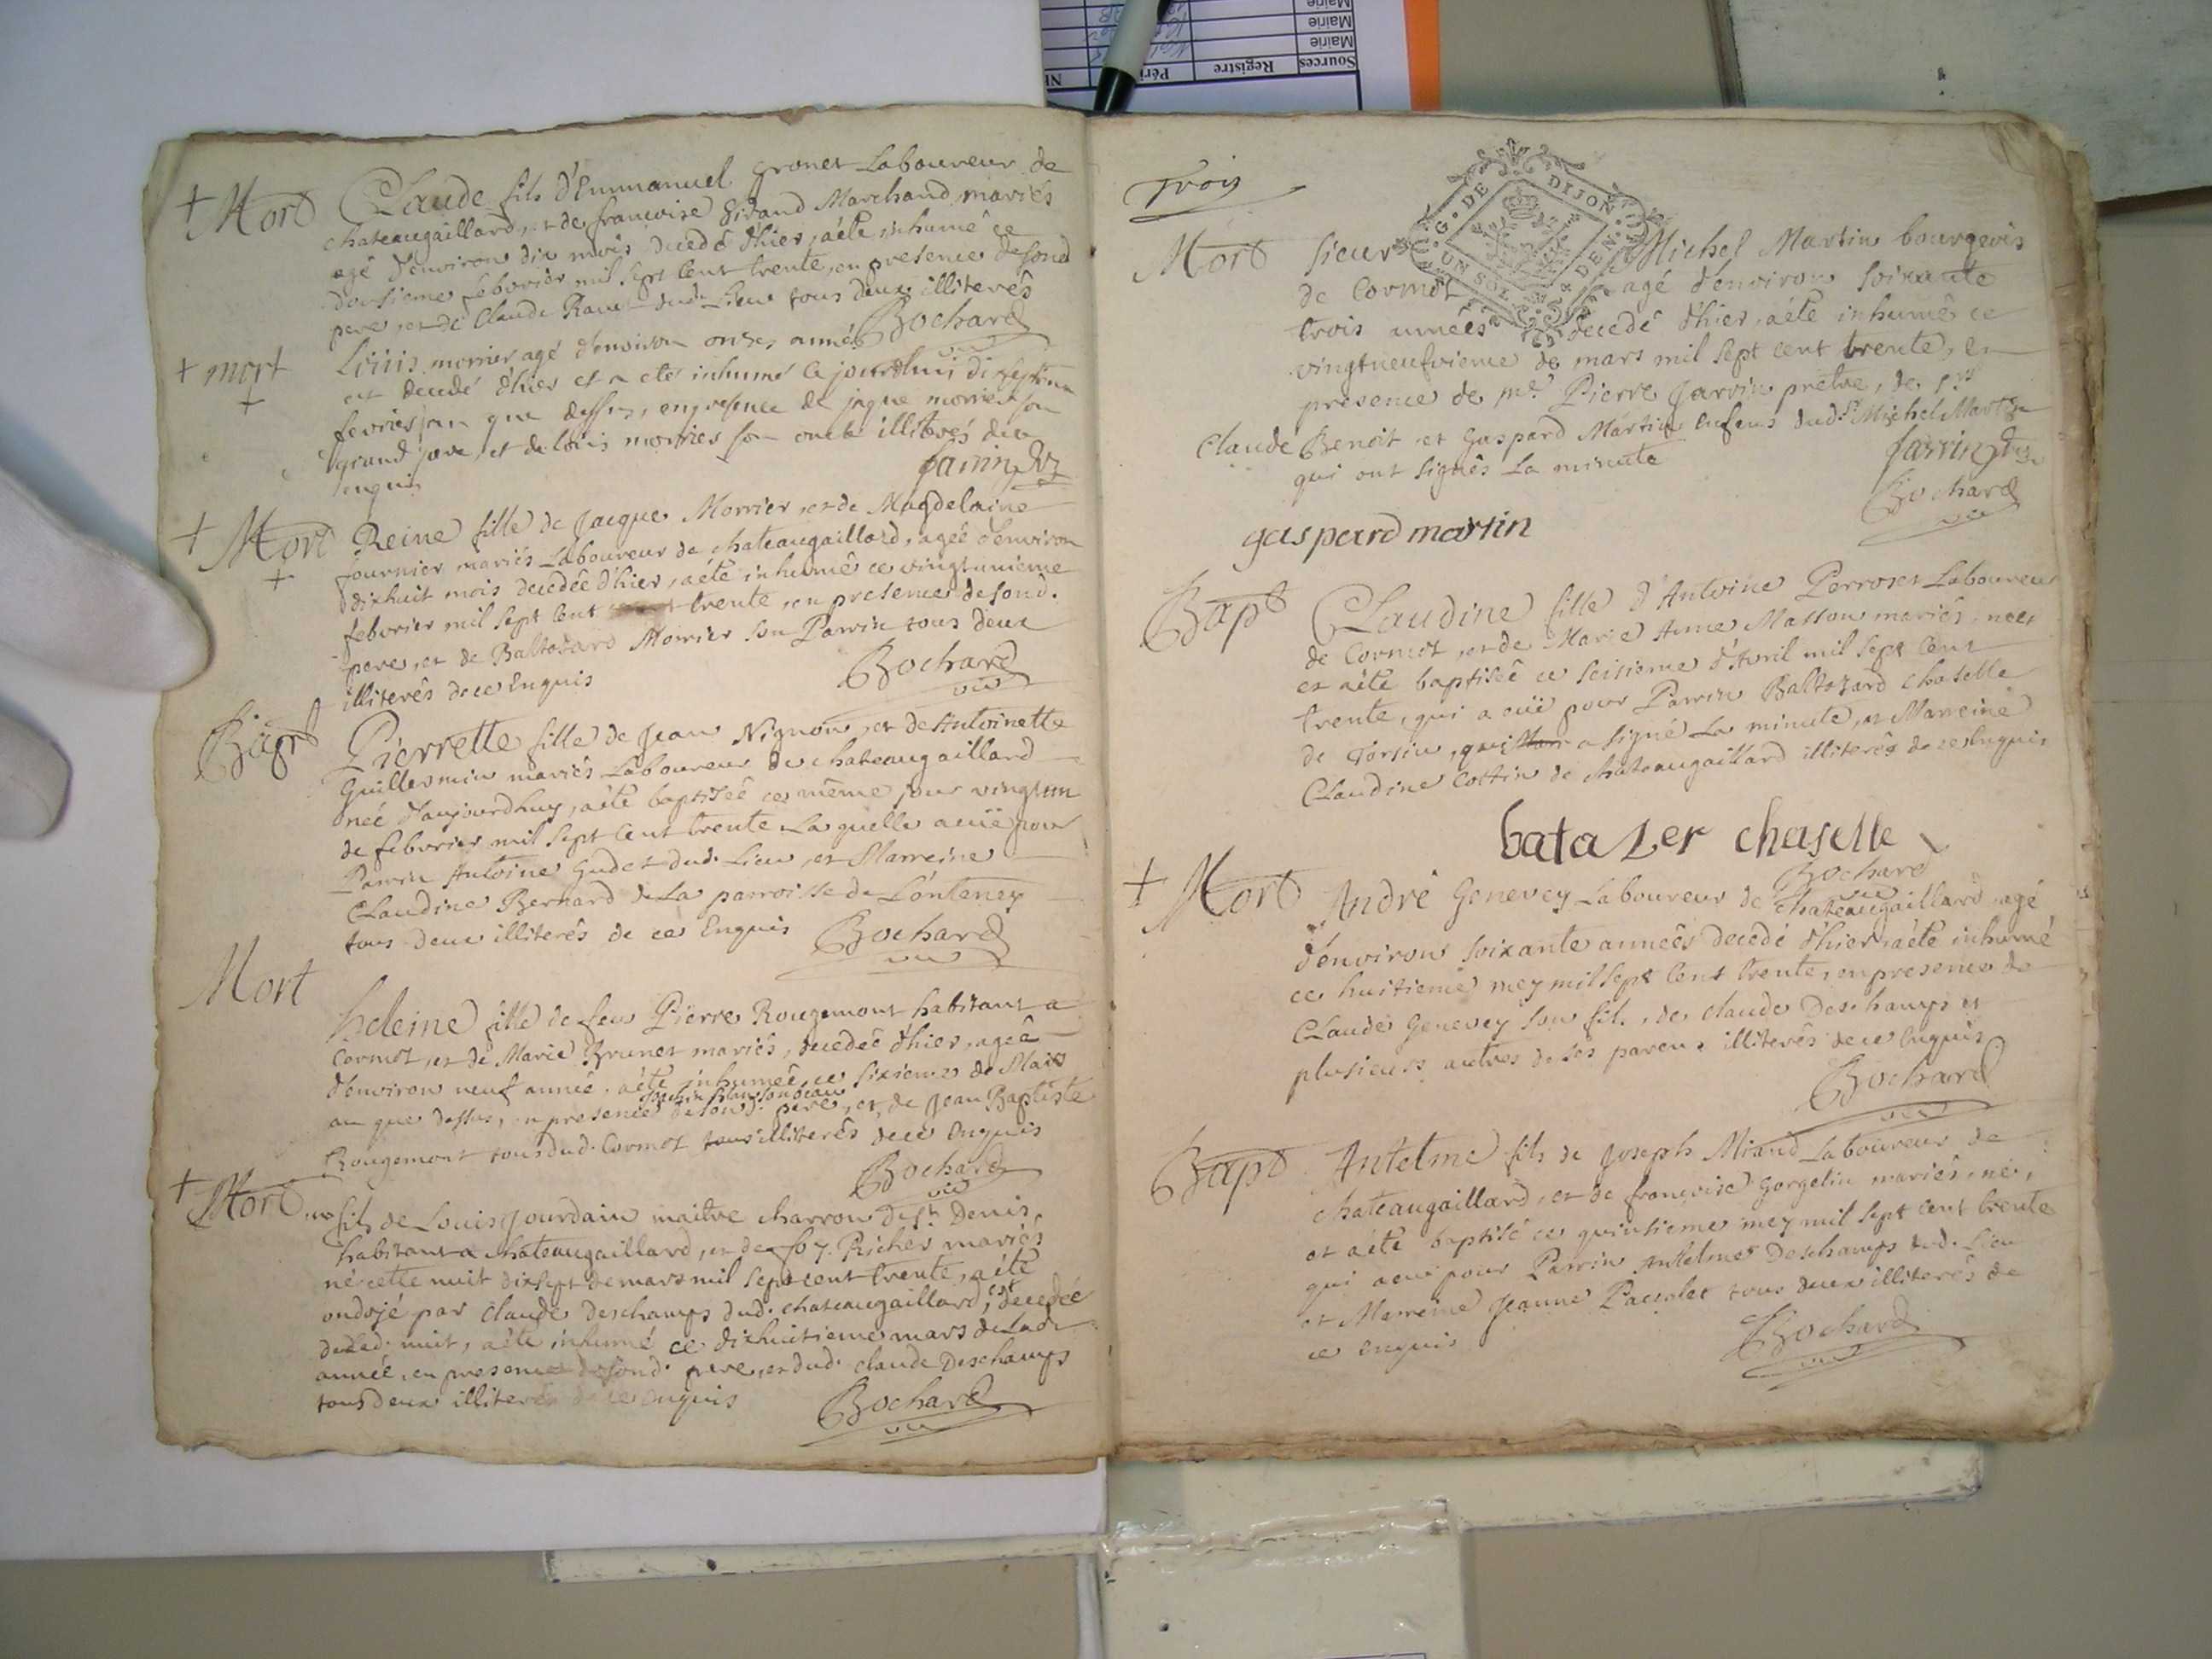 Sources Registre Péri
Mairie
Mairie
Mairie
+ Mort Claude fils d'Emmanuel gronet Laboureur de
chateaugaillard, et de francoise Girand Marchand mariés
agé d'environ dix mois decedé d'hier, aété inhumé ce
dousieme febvrier mil sept cent trente, en presence de sond
pere, et de Claude Ravet dud. Lieu tous deux illiterés
Bochard
+ mort Louis morrier agé d'environ onze, année
+ est decedé d'hier et a eté inhumé ce jourdhui dixseptieme
fevrier, an que dessus, en presence de jaque morrier son
grand pere, et de louis morrier son oncle illiterés de ce
enquis
+ Mort Reine fille de Jacque Morrier, et de Magdelaine
+ fournier mariés Laboureur de chateaugaillard, agée d'environ
dixhuit mois decedée d'hier, aété inhumé ce vingtunieme
febvrier mil sept cent trente, en presence de sond.
pere, et de Baltazard Morrier son Parrin tous deux
illiterés de ce Enquis Bochard
Bapt Pierrette fille de Jean Nignon, et de Antoinette
Guillermin mariés Laboureur de chateaugaillard
née d'aujourdhuy, aété baptisée ce même jour vingtun
de febvrier mil sept cent trente La quelle a euë pour
Parrin Antoine Gudet dud. Lieu, et Marreine
Claudine Bernard de La parroisse de L'onteney
tous deux illiterés de ce Enquis Bochard
Mort heleine fille de feu Pierre Rougemont habitant a
Cormot, et de Marie Brunet mariés, decedée d'hier, agée
d'environ neuf année, aété inhumée ce sixieme de Mars
an que dessus, en presence de sond. pere, et de Jean Baptiste
Rougemont tous dud. Cormot tous illiterés de ce Enquis
Bochard
+ Mort un fils de Louis Jourdain maitre charron de St. Denis,
habitant a chateaugaillard, et de foy. Richer mariés
né cette nuit dixsept de mars mil sept cent trente, aété
ondojé par Claude Deschamps dud. chateaugaillard, est decedée
de lad. nuit, aété inhumé ce dixhuitieme mars de lad.
année, en presence de sond. pere, et dud. claude Deschamps
tous deux illiterés de ce enquis Bochard
Trois
G. DE DIJON
UN SOL
DEN.
Mort Sieur Michel Martin bourgeois
de Cormot agé d'environ soixante
trois années decedé d'hier, aété inhumé ce
vingtneufvieme de mars mil sept cent trente, en
presence de me. Pierre Jarrin pretre, de srs
Claude Benoit et Gaspard Martin enfens dud. Sr. Michel Martin
qui ont signés La minute
Bochard
gaspard martin
Bapt Claudine fille d'Antoine Perroset Laboureur
de Cormot, et de Marie Anne Masson mariés, née
et aété baptisée ce seisieme d'Avril mil sept cent
trente, qui a euë pour Parrin Baltazard chaselle
de Torsin, qui a signé La minute, et Marreine
Claudine Cottin de chateaugaillard illiterés de ce Enquis
batazer chaselle
Bochard
+ Mort André Genevey Laboureur de chateaugaillard, agé
d'environ soixante années decedé d'hier, aété inhumé
ce huitieme mey mil sept cent trente, en presence de
Claude Genevey son fils, de claude Deschamps et
plusieurs autres de ses parens illiterés de ce Enquis
Bochard
Bapt Antelme fils de Joseph Miand Laboureur de
chateaugaillard, et de francoise Gorgelin mariés, né,
et aété baptisé ce quinsieme mey mil sept cent trente
qui a eu pour Parrin Antelme Deschamps dud. Lieu
et Marreine Jeanne Pacolet tous deux illiterés de
ce enquis Bochard